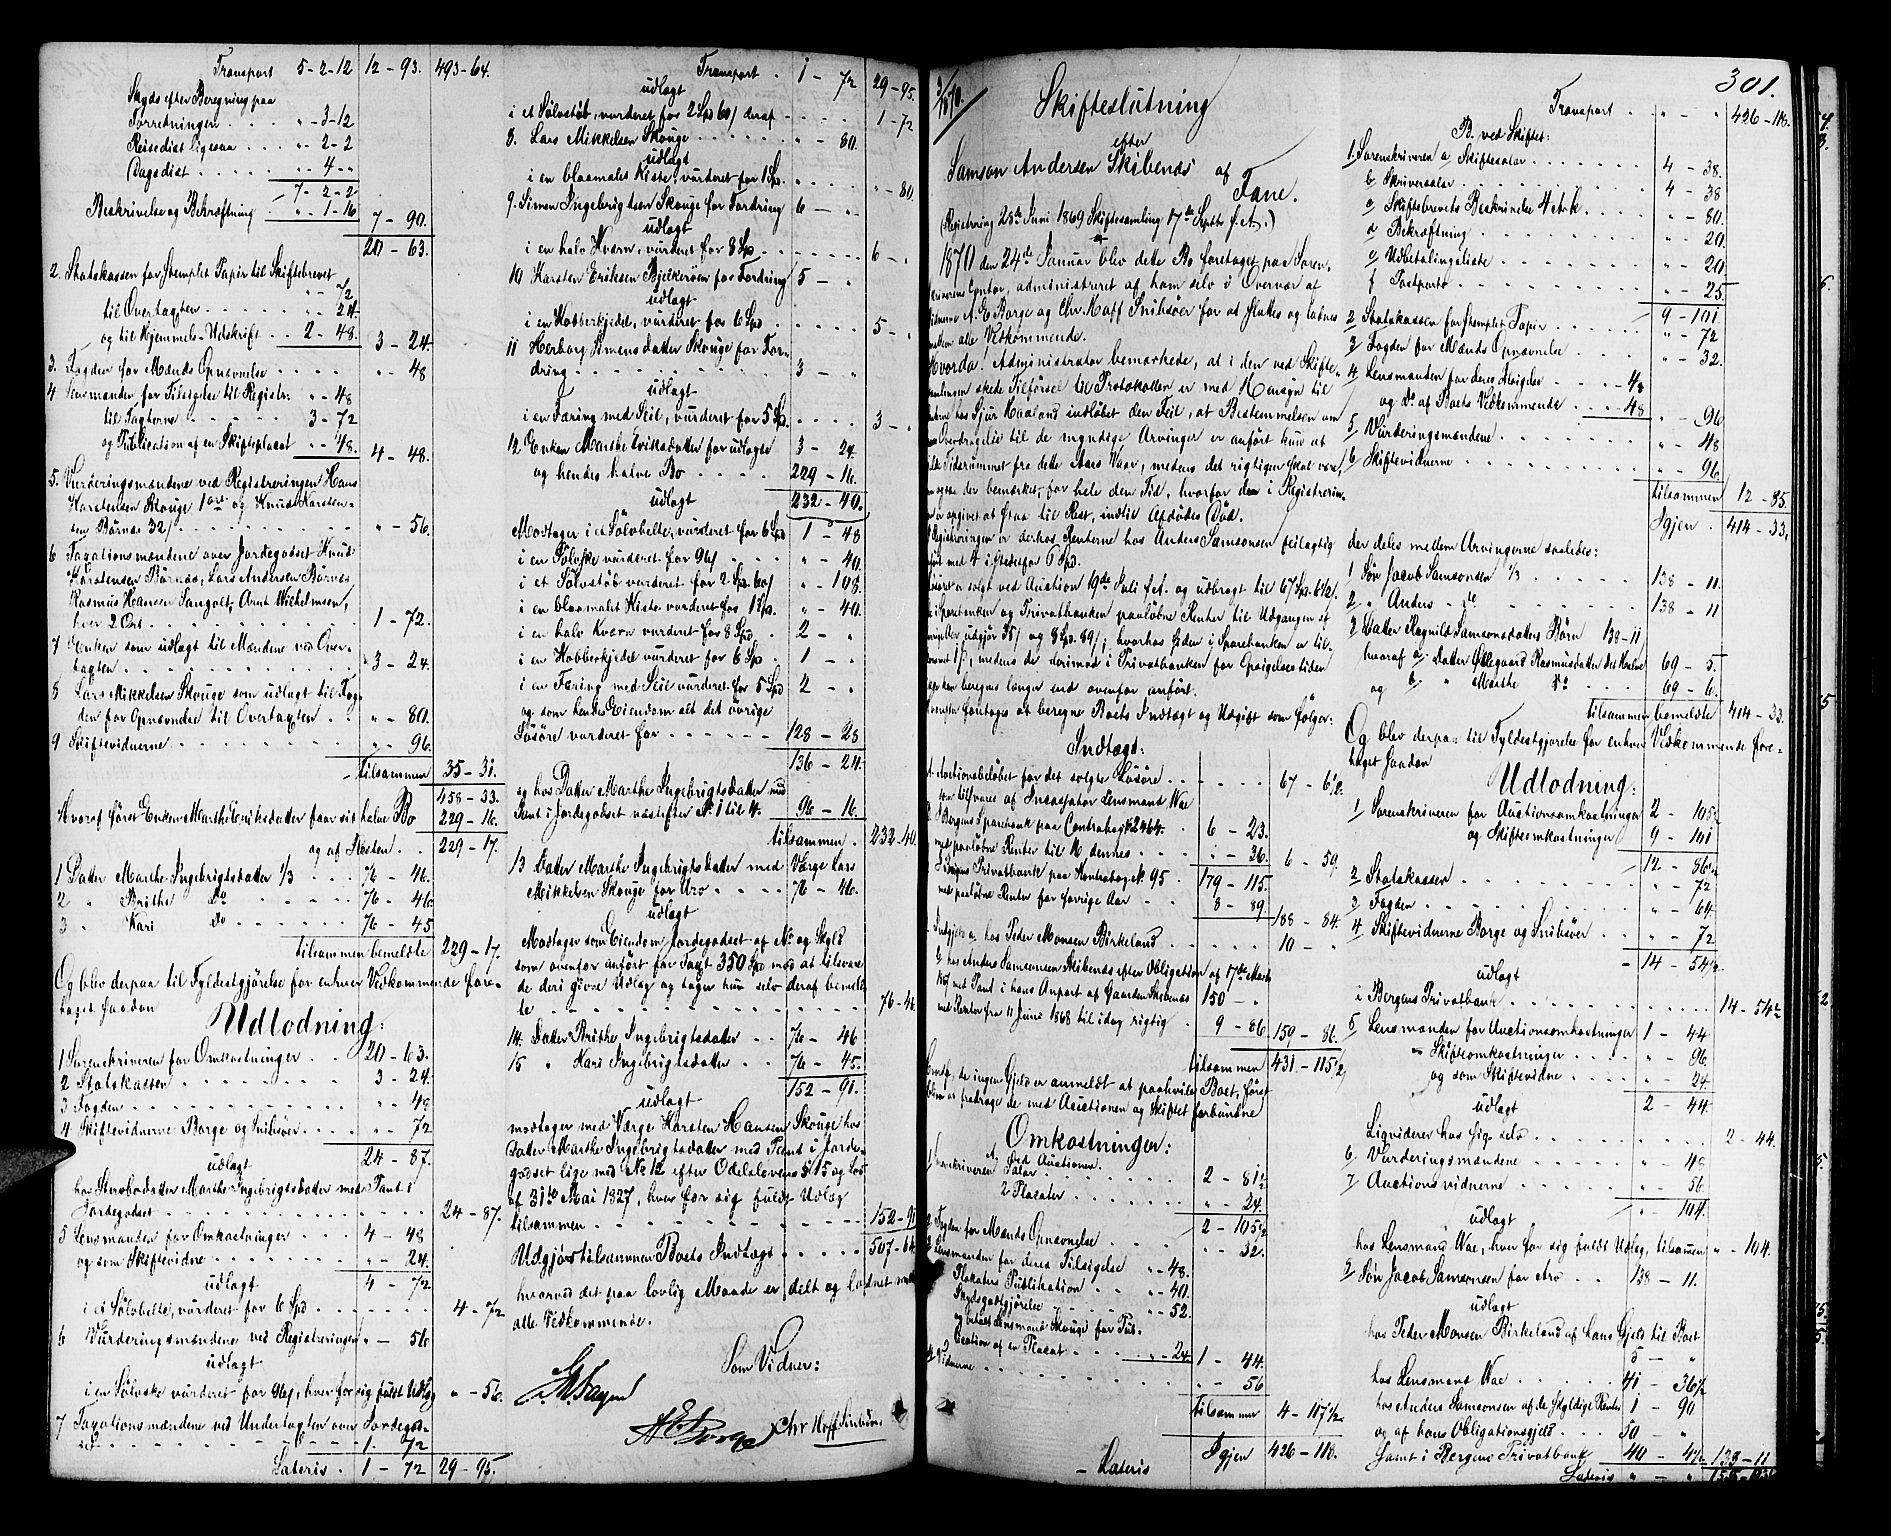 Transport 5-2-12 | 12-93. | 493-64.
Skyds efter Beregning paa
Forretningen . . . . " -3-12
Reisediæt ligesaa . . " -2-2
Dagsdiæt . . . . . " 4 - "
7-2-2
Beskrivelse og Bekræftning " 1-16 | 7-90.
20-63.
2. Statskassen for Stemplet Papir til Skiftebrevet
" -72
til Overtagten . . . . . " 24.
og til Hjemmels-Udskrift . . 2-48. | 3-24.
3. Fogden for Mænds Opnævnelse . . . . " -48
4 Lensmanden for Tilsigelse til Registr: " -48
til Tagterne . . . . . . 3-72
og Publication af en Skifteplacat . . " 48. | 4-48.
5. Vurderingsmændene ved Registreringen Hans
Karstensen Skouge 1 ort og Knud Karsten-
sen Børnæs 32/ . . . . . " -56.
6 Taxationsmændene over Jordegodset Knud
Karstensen Børnæs, Lars Andersen Børnæs
Rasmus Hansen Sangolt, Arnt Wilhelmsen,
hver 2 Ort . . . . . . . 1-72.
7 Enken som udlagt til Mændene ved Over-
tagten . . . . . . . " 3-24.
8 Lars Mikkelsen Skouge som udlagt til Fog-
den for Opnævnelse til Overtagten . . " -80.
9 Skiftevidnerne . . . . . " -96.
tilsammen | 35-31.
458-33.
Hvoraf først Enken Marthe Eriksdatter faar sit halve Bo 229-16.
og af Resten . . 229-17.
1 Datter Marthe Ingebrigtsdatter 1/3 . . . 76-46.
2 " Brithe Do . . . . . . 76-46
3 " Kari Do . . . . . . 76-45
tilsammen bemeldte | 229-17.
Og blev derpaa til Fyldestgjørelse for enhver Vedkommende fore-
taget saadan
Udlodning:
1 Sorenskriveren for Omkostninger . . 20-63.
2 Statskassen . . . . . . . . 3-24.
3 Fogden . . . . . . . . . " -48
4 Skiftevidnerne Borge og Snihsøer . . . . " -72
24-87.
udlagt
hos Stervbodatter Marthe Ingebrigtsdatter med Pant i
Jordegodset . . . . . . . . . 24-87.
5 Lensmanden for Omkostninger . . . 4-48
og som Skiftevidne . . . . . " -24.
udlagt 4-72
i et Sølvbelte, vurderet for 6 Spd . . . . . . 4-72
6 Vurderingsmændene ved Registreringen " -56
udlagt
i en Sølvske vurderet for 96/, hver for sig fuldt Udlæg " -56.
7 Taxationsmændene ved Undertagten over Jordegod-
set . . . . . . . . 1. 72
Lateris . 1-72 | 29-95.
Transport . 1-72 | 29-95.
udlagt
i et Sølvstøb, vurderet for 2 Spd 60/ deraf . . . . . 1-72
8. Lars Mikkelsen Skouge . . . . . . " -80.
udlagt
i en blaamalet Kiste, vurderet for 1 Spd. . . . . . " -80.
9. Simen Ingebrigtsen Skouge for Fordring 6 - " .
udlagt
i en halv Kværn, vurderet for 8 Spd . . . . . . . 6 - " .
10 Karsten Eriksen Bjelkerøen for Fordring 5 - "
udlagt
i en Kobberkjedel, vurderet for 6 Spd . . . . . . 5 - "
11 Herborg Simensdatter Skouge for For-
dring . . . . . . . . . . 3 - "
udlagt
i en Færing med Seil, vurderet for 5 Spd . . . . 3 - " .
12 Enken Marthe Eriksdatter for udlagte 3-24
og hendes halve Bo . . . . . . 229-16.
udlagt 232-40.
Modtager i et Sølvbelte, vurderet for 6 Spd 1-48
i en Sølvske vurderet for 96/ . . . " -40
i et Sølvstøb vurderet for 2 Spd. 60/ " -108
i en blaamalet Kiste vurderet for 1 Spd. " -40.
i en halv Kværn vurderet for 8 Spd. . 2 - "
i en Kobberkjedel vurderet for 6 Spd . 1 - " .
i en Færing med Seil vurderet for 5 Spd 2 - "
og som hendes Eiendom alt det øvrige
Løsøre vurderet for . . . . . . . 128-28
136-24.
og hos Datter Marthe Ingebrigtsdatter med
Pant i Jordegodset næstefter No. 1 til 4. 96-16.
tilsammen . 232-40.
13 Datter Marthe Ingebrigtsdatter med Værge Lars
Mikkelsen Skouge for Arv . . . . 76-46.
udlagt
Modtager som Eiendom Jordegodset af No. og Skyld
som ovenfor anført for Taxt 350 Spd mod at tilsvare
de deri givne Udlæg og tager hun selv deraf bemeld-
te . . . . . . . . . . . . . 76-46
14. Datter Brithe Ingebrigtsdatter . . 76-46
15 " Kari Ingebrigtsdatter . . 76-45.
152-91.
udlagt
modtager med Værge Karsten Hansen Skouge hos
Datter Marthe Ingebrigtsdatter med Pant i Jorde-
godset lige med No 12 efter Odelslovens § 15 og Lov
af 31te Mai 1827, hver for sig fuldt Udlæg
tilsammen . . . . . . . . . . . . 152-91
Udgjør tilsammen Boets Indtægt . . . . . 507-64
hvorved det paa lovlig Maade er delt og lodnet mellem
alle Vedkommende.
Som Vidner:
AEBorge Chr Hoff Snihsøer
3/1870.
301.
Skifteslutning
efter
Samson Andersen Skibenæs af
Fane.
(Registrering 25de Juni 1869 Skiftesamling 17de Septbr f. A.)
1870 den 24de Januar blev dette Bo foretaget paa Soren-
skriverens Contor, administreret af ham selv i Overvær af
Vidnerne A. E Borge og Chr. Hoff Snihsøer for at sluttes og lodnes
mellem alle Vedkommende.
Hvorda! Administrator bemærkede, at i den ved Skifte-
samlingen skede Tilførsel til Protokollen er med Hensyn til
hos Sjur Haaland indløbet den Feil, at Bestemmelsen om
Overdragelse til de myndige Arvinger er anført kun at
Tidsrummet fra dette Aars Vaar, medens det rigtigen skal være,
der bemærket, for hele den Tid, hvorfor den i Registrerin-
opgivet at staa til Rest, indtil Afdødes Død.
Registreringen er derhos Renterne hos Anders Samsonsen feilagtig
med 4 istedetfor 6 Spd.
solgt ved Auction 19de Juli f.A. og udbragt til 67 Spd. 6 1/2/.
i Sparebanken og Privatbanken paaløbne Renter til Udgangen af
udgjør 35/ og 8 Spd. 89/; hvorhos Giden i Sparebanken er til-
17/, medens de derimod i Privatbanken for Opsigelsestiden
kan beregnes længer end ovenfor anført.
foretages at beregne Boets Indtægt og Udgift som følger:
Indtægt:
Auctionsbeløbet for det solgte Løsøre . . - . . . 67-6 1/2.
som tilsvares af Incassator Lensmand Wae
Bergens Sparebank paa Contrabog No 2464. . 6-23.
med paaløbne Renter til " -36. 6-59.
Bergens Privatbank paa Kontrabog No. 95 . 179-115.
med paaløbne Renter for forrige Aar . . 8-89 | 188-84.
hos Peder Monsen Birkeland . . . . . . 10 - "
hos Anders Samsonsen Skibenæs efter Obligation af 17de Marts
med Pant i hans Anpart af Gaarden Skibenæs 150 - " .
med Renter fra 11 Juni 1868 til idag rigtig . 9-86 | 159-86.
tilsammen | 431-115 1/2
da ingen Gjeld er anmeldt at paahvile Boet, først
at fradrage de med Auctionen og Skiftet forbundne
Omkostninger:
A, Ved Auctionen.
Sorenskriveren Salær . . . . . . . . 2-81 1/2
2 Placater . . . . . . . " -24.
2-105 1/2
Fogden for Mænds Opnævnelse . . . . . " 32.
Lensmanden for deres Tilsigelse " -48.
Placaters Publikation . . . " -40.
Skydsgodtgjørelse . . . . . " -52.
og betalt Lensmand Skouge for Pub-
lication af en Placat . . . . . " -24. | 1-44.
Vidnerne . . . . . . . . . . . . " -56
tilsammen | 4-117 1/2
Igjen | 426-118.
Lateris
Transport . . . . " - " | 426-118.
B. ved Skiftet:
1. Sorenskriveren a Skiftesalær . . . . . . . 4-38.
b Skriversalær . . . . . . . 4-38
c Skiftebrevets Beskrivelse " -80.
d Bekræftning . . . . . " -20.
e Udbetalingsliste . . . . . " -20
f Postporto . . . . . . . " -25.
9-101
2 Statskassen for Stemplet Papir . . . . " -72
3 Fogden for Mænds Opnævnelse . . . " -32.
4 Lensmanden for deres Tilsigelse . . " -48
og Do. af Boets Vedkommende . . . " -48 | " -96
5 Vurderingsmændene . . . . . . " -48
6 Skiftevidnerne . . . . . . . " -96.
tilsammen | 12-85.
Igjen . | 414-33,
der deles mellem Arvingerne saaledes:
1 Søn Jacob Samsonsen 1/3 . . . . . 138-11.
2 " Anders - do . . . . . 138-11
3 Datter Ragnild Samsonsdatters Børn 138-11
hvoraf a, Datter Øllegaard Rasmusdatter det Halve 69-5.
og b, " Marthe Do . . . . 69-6.
tilsammen bemeldte | 414-33.
Og blev derpaa til Fyldestgjørelse for enhver Vedkommende fore-
taget saadan
Udlodning:
1 Sorenskriveren for Auctionsomkostninger 2-105 1/2
og Skifteomkostninger 9-101
12-86 1/2
2 Statskassen . . . . . . . . " -72
3 Fogden . . . . . . . . " -64
4 Skiftevidnerne Borge og Snihsøer . . . " -72
14-54 1/2
udlagt
i Bergens Privatbank . . . . . . . . . 14-54 1/2
5 Lensmanden for Auctionsomkostninger 1-44
" Skifteomkostninger . . . . " -96
og som Skiftevidne . . . . " -24
udlagt 2-44
Liqviderer hos sig selv . . . . . . . 2-44.
6 Vurderingsmændene . . . . " -48
7 Auctionsvidnerne . . . . . " -56
" -104.
udlagt
hos Lensmand Wae, hver for sig fuldt Udlæg, tilsamen " -104.
8 Søn Jacob Samsonsen for Arv . . . 138-11.
udlagt
hos Peder Monsen Birkeland af hans Gjeld til Boet
5 - "
hos Lensmand Wae . . . 41-36 1/2
hos Anders Samsonsen af de skyldige Renter 1-90
og af hans Obligationsgjeld 50 - "
Samt i Bergens Privatbank 40 - 4 1/2 | 138-11
Lateris " - "